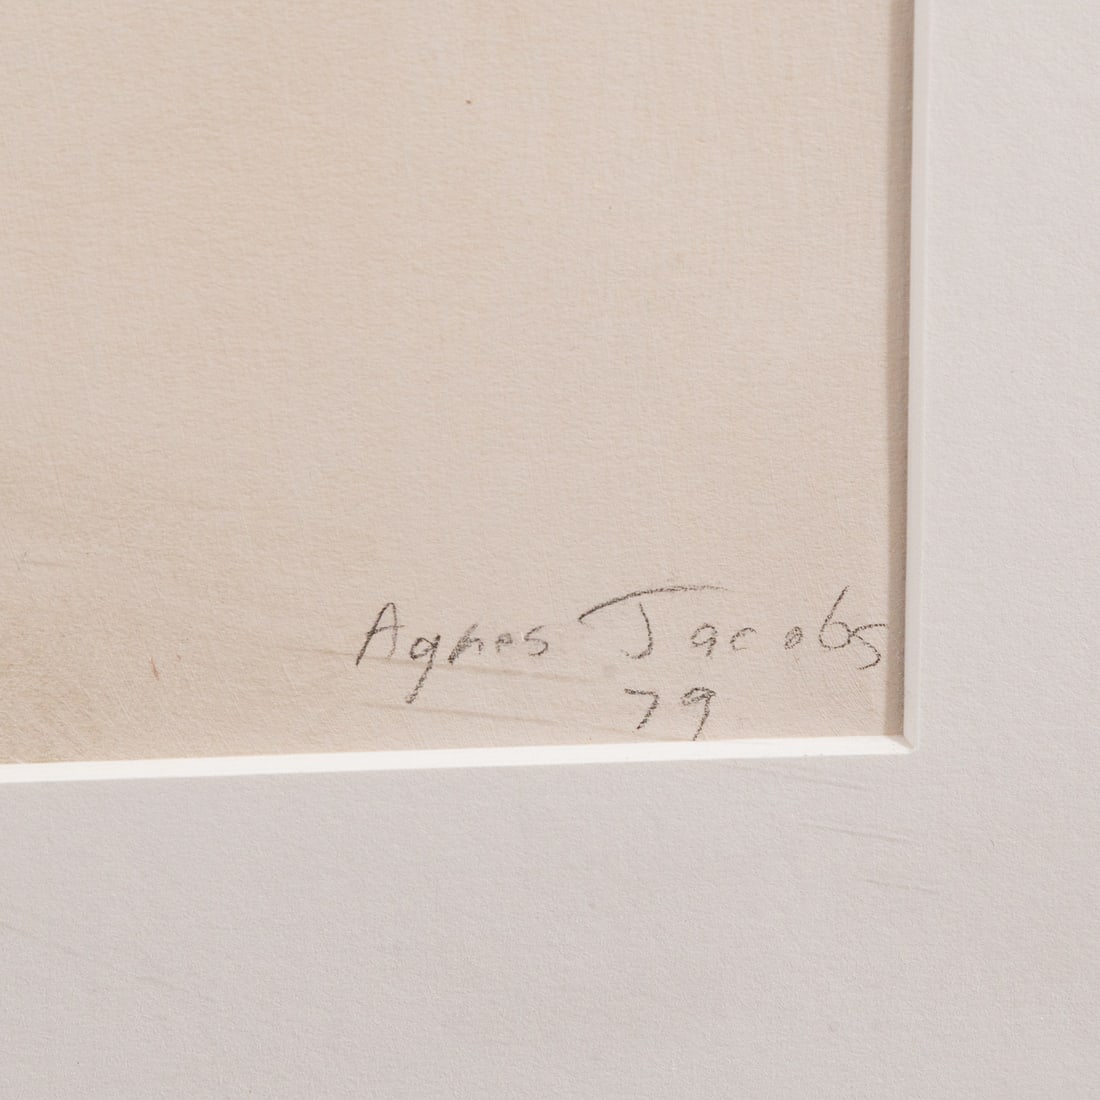 Agnes Jacobs
79